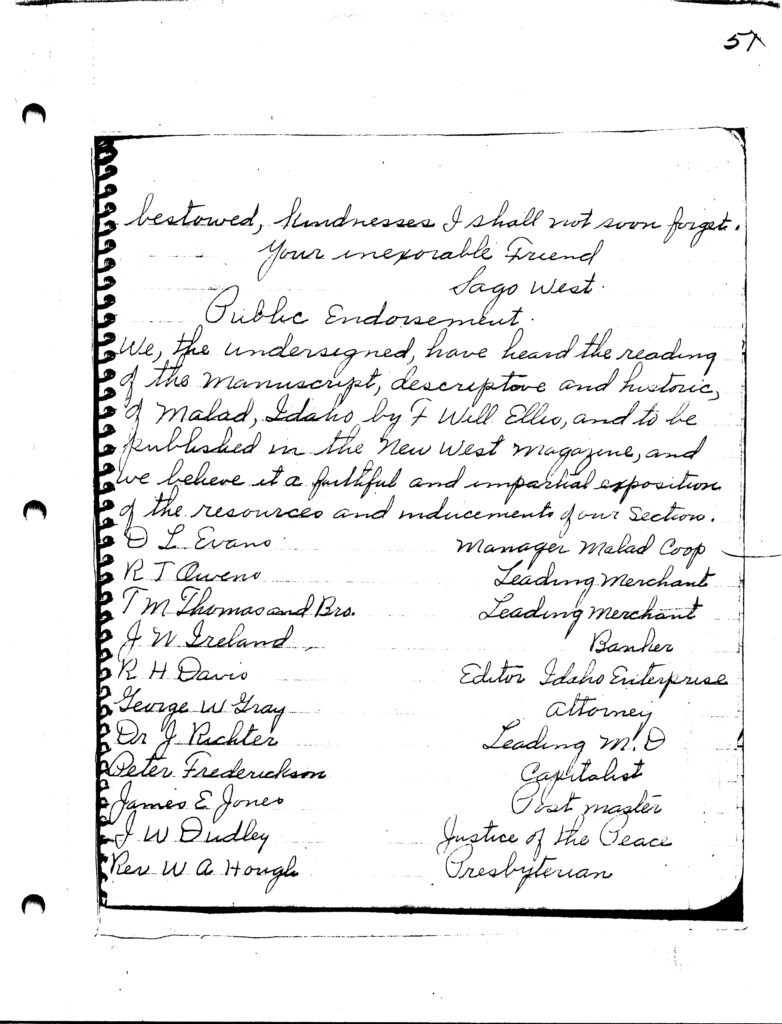 57
bestowed, kindnesses I shall not soon forget.
Your inexorable Friend
Sago West.
Public Endorsement.
We, the undersigned, have heard the reading
of the manuscript, descriptove and historic,
of Malad, Idaho by F Will Ellis, and to be
published in the New West Magazine, and
we believe it a faithful and impartial exposition
of the resources and inducements of our section.
D L Evans Manager Malad Coop
R T Owens Leading Merchant
T M Thomas and Bro. Leading Merchant
J N Ireland Banker
R H Davis Editor Idaho Enterprise
George W Gray Attorney
Dr J Richter Leading M.D
Peter Frederickson Capitalist
James E Jones Post master
J W Dudley Justice of the Peace
Rev W A Hough Presbyterian